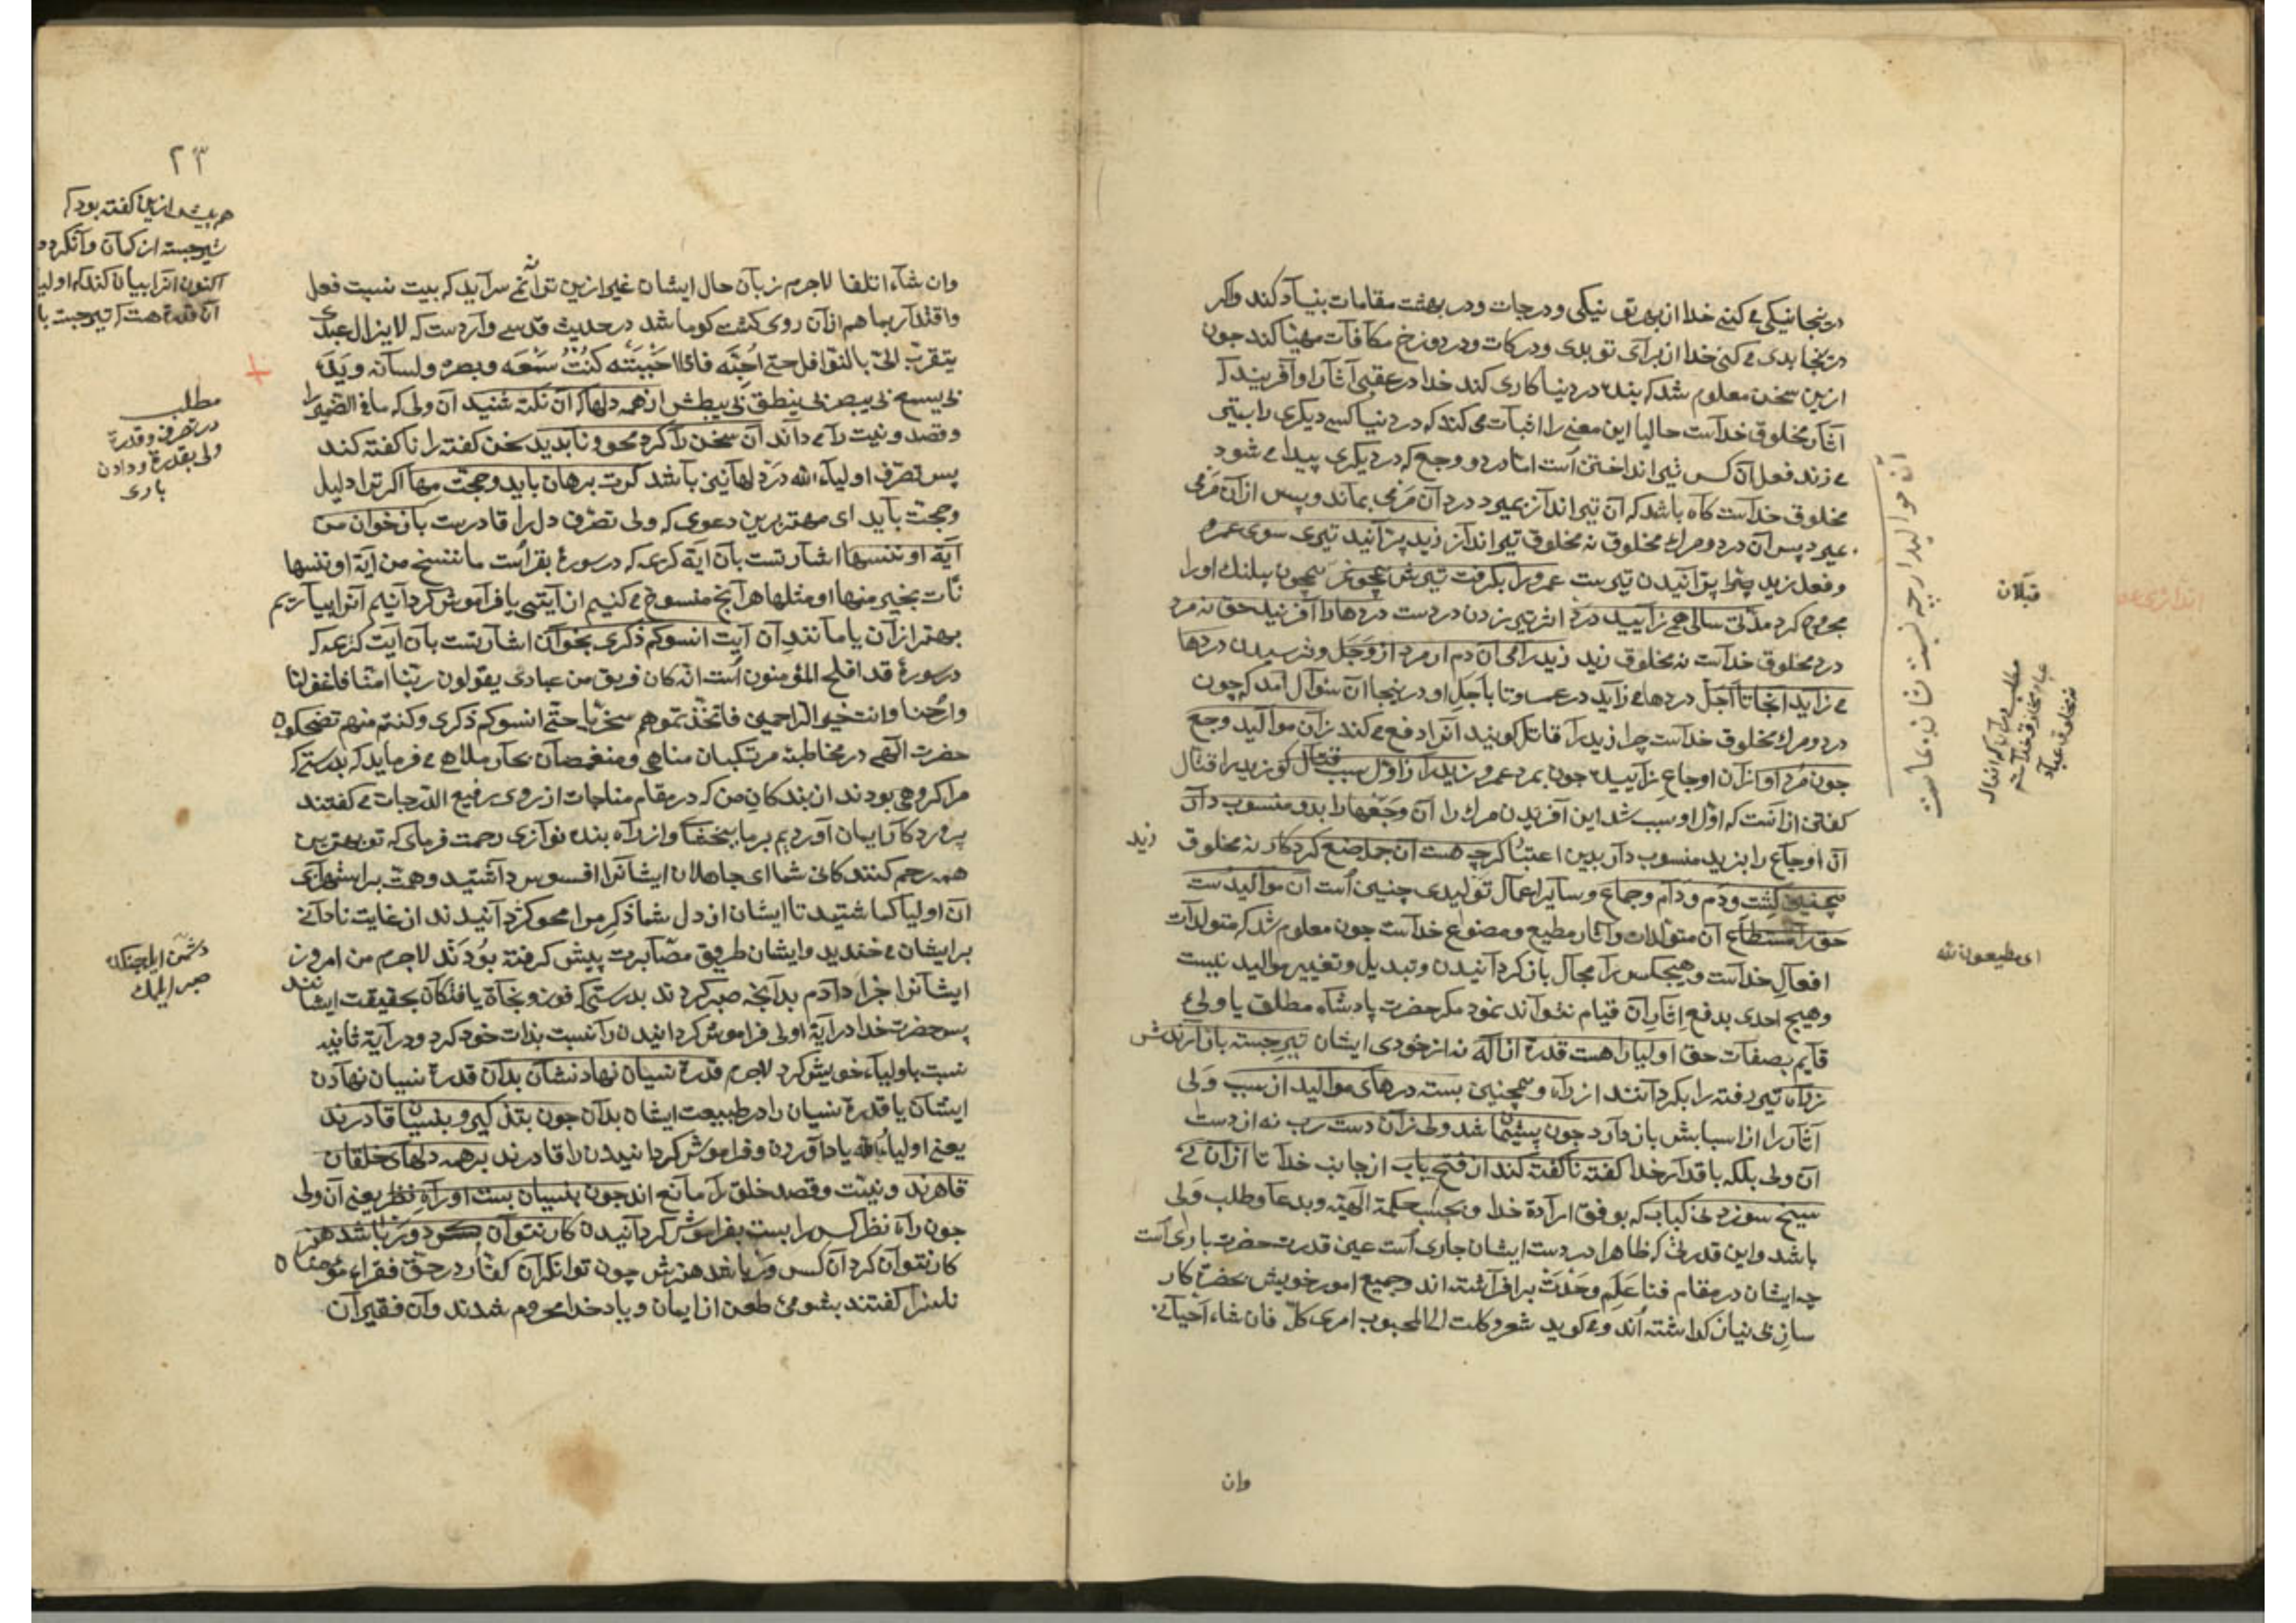 درینجا نیکی می کنی خدا از برای تو نیکی ودرجات ودر بهشت مقامات بنیاد کند واکر
درینجا بدی می کنی خدا از برای تو بدی ودرکات ودر دوزخ مکافات مهیا کند جون
ازین سخن معلوم شد که بنده در دنیا کاری کند خدا در عقبی آثار او آفریند که
آثار مخلوق خداست حالیا این معنی را اثبات می کند که در دنیا کسی دیکری را بتیر
می زند فعل آن کس تیر انداختن است اما درد و وجع که در دیکری پیدا می شود
مخلوق خداست کاه باشد که آن تیر انداز بمیرد درد آن مرمی بماند وپس از آن مرمی
بمیرد پس آن درد ومرك مخلوق نه مخلوق تیر انداز زید پرانید تیری سوی عمرو
وفعل زید پرانیدن تیرست عمرو را بکرفت تیرش همچو نمر همچون پلنك اورا
مجروح کرد مدتی سالی همی زایید درد اثر تیر زدن دردست دردها را آفریند حق نه مرد
درد مخلوق خداست نه مخلوق زید زید رامی آن دم ار مرد از وجل دردها
می زاید آنجا تا اجل دردها می زاید در عمرو تا باجل او درینجا آن سؤال آمد که چون
درد ومرك مخلوق خداست چرا زید را قاتل کویند آنرا دفع می کند زان موالید وجع
جون مرد او از آن اوجاع زاییده جون بمرد عمرو زید را ز اول سبب قتال کو زید را قتال
کفتن از آنست که اول او سبب شد این آفریدن مرك را آن وجعها را بدو منسوب دار
آن اوجاع را بزید منسوب دار بدین اعتبار کرچه هست آن جمله صنع کردکار نه مخلوق
زید
همچنین کشت ودم ودام وجماع وسایر اعمال تولیدی چنین است آن موالیدست
حق را مستطاع آن متولدات وآثار مطیع ومصنوع خداست جون معلوم شد که متولدات
افعال خداست وهیچکس را مجال باز کردانیدن وتبدیل وتغییر موالید نیست
وهیچ احدی بدفع آثار آن قیام نتواند نمود مکر حضرت پادشاه مطلق یا ولیء
قایم بصفات حق اولیا را هست قدرت از اله نه از خودی ایشان تیر جسته باز آرندش
ز راه تیر رفته را بکردانند از راه وهمچنین بسته درهای موالید از سبب ولی
آثار را از اسبابش باز دارد جون پشیمان شد ولی زان دست رب نه از دست
آن ولی بلکه باقدار خدا کفته ناکفته کند از فتح باب از جانب خدا تا از آن نی
سیخ سوزد نی کباب که بوفق ارادة خدا وبحسب حکمة الهیة وبدعا وطلب ولی
باشد واین قدرتی که ظاهرا در دست ایشان جاری است عین قدرت حضرت باری است
چه ایشان در مقام فنا علم وحدت برافراشته اند وجمیع امور خویش بحضرة کار
ساز بی نیاز کذاشته اند ومی کوید شعر وکلت الی المحبوب امری کل فان شاء احیانی
وان
آن موالید ارچه نسبت شان بماست
قبلان
ای مطیعون لله
۲۳
وان شاء اتلفا لاجرم زبان حال ایشان غیر ازین ترانه نمی سراید که بیت نسبت فعل
واقتدار بما هم از آن روی کشت کو ما شد در حدیث قدسی واردست که لا یزال عبدی
یتقرب الی بالنوافل حتی احبه فاذا احببته کنت سمعه وبصره ولسانه ویده
بی یسمع بی یبصر بی ینطق بی یبطش از همه دلها که آن نکته شنید آن ولی که ما فی الضمیر را
وقصد ونیت را می داند آن سخن را کرد محو وناپدید سخن کفته را ناکفته کند
پس تصرف اولیاء الله در دلها این باشد کرت برهان باید وحجت مها اکر ترا دلیل
وحجت باید ای مهتر برین دعوی که ولی تصرف دل را قادرست باز خوان من
آیة او ننسها اشارتست بآن آیة کریمه که در سورة بقراست ما ننسخ من آیة او ننسها
نأت بخیر منها او مثلها هر آنچ منسوخ می کنیم از آیتی یا فراموش کردانیم آنرا بیاریم
بهتر از آن یا مانند آن آیت انسوکم ذکری بخوان اشارتست بآن آیت کریمه که
در سورة قد افلح المؤمنون است انه کان فریق من عبادی یقولون ربنا امنا فاغفر لنا
وارحمنا وانت خیر الراحمین فاتخذتموهم سخریا حتی انسوکم ذکری وکنتم منهم تضحکون
حضرت الهی در مخاطبة مرتکبان مناهی ومنغمصان بحار ملاهی می فرماید که بدرستی که
مر اکروهی بودند از بندکان من که در مقام مناجات از روی رفیع الدرجات می کفتند
پروردکارا ایمان آوردیم بر ما ببخشا واز راه بنده نوازی رحمت فرمای که تو بهترین
همه رحم کنندکانی شما ای جاهلان ایشانرا افسوس داشتید وهمت بر استهزای
آن اولیا کماشتید تا ایشان از دل شما ذکر مرا محو کردانیدند از غایت نادانی
بر ایشان می خندید وایشان طریق مصابرت پیش کرفته بودند لاجرم من امروز
ایشانرا جزا دادم بدانچه صبر کردند بدرستی که فوز ونجاة یافتکان بحقیقت ایشانند
پس حضرت خدا در آیة اولی فراموش کردانیدن را نسبت بذات خود کرد ودر آیة ثانیه
نسبت باولیاء خویش کرد لاجرم قدرة نسیان نهادنشان بدان قدرة نسیان نهادن
ایشان یا قدرة نسیان را در طبیعت ایشان بدان جون بتذکیر وبنسیان قادرند
یعنی اولیاء الله یاد آوردن وفراموش کردانیدن را قادرند بر همه دلهای خلقان
قاهرند ونیت وقصد خلق را مانع اند جون بنسیان بست او راه نظر یعنی آن ولی
جون راه نظر کس را بست بفراموش کردانیدن کار نتوان کرد ور باشد هنر
کار نتوان کرد آن کس ور باشد هنرش چون توانکران کفار در حق فقراء مؤمنان
ناسزا کفتند بشومئ طعن از ایمان ویاد خدا محروم شدند وآن فقیران
هم پیش ازین کفته بود که
تیر جسته از کمان وانکردد
اکنون آنرا بیان کند که اولیا
آن قدرة هست که تیر جسته با
مطلب
در تصرف وقدرة
ولی بقدرة ودادن
باری
دشمن ایله جنکده
صبر ایلمك